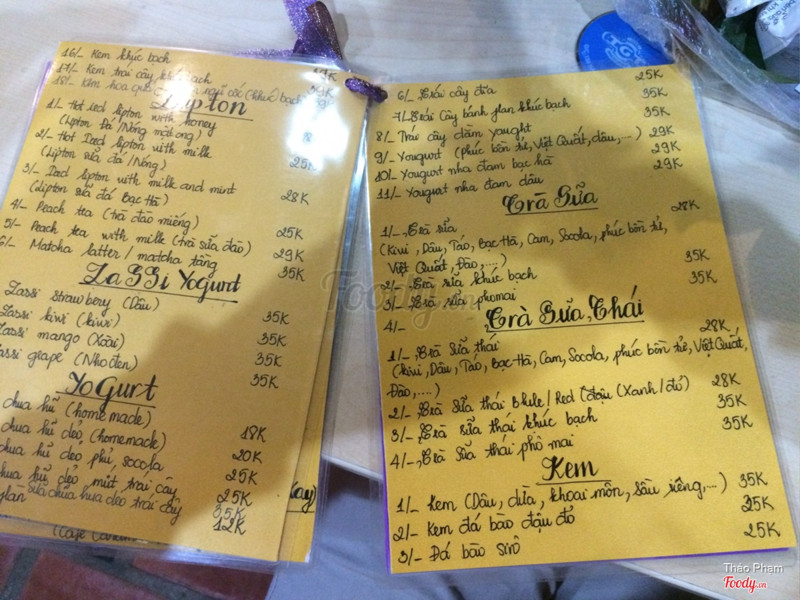 16/- Kem khúc bạch
17/- Kem trái cây khúc bạch 35K
18/- Kem hoa quả ngũ cốc (khúc bạch)
Lipton
1/- Hot iced lipton with honey
(Lipton Đá/Nóng mật ong)
2/- Hot Iced lipton with milk
(Lipton sữa đá/Nóng) 25K
3/- Iced lipton with milk and mint
(Lipton sữa đá Bạc Hà) 28K
4/- Peach tea (trà đào miếng) 25K
5/- Peach tea with milk (trà sữa đào) 29K
6/- Matcha latter/matcha tầng 35K
LaSSi Yogurt
Lassi Strawbery (Dâu) 35K
Lassi kiwi (kiwi) 35K
Lassi mango (Xoài) 35K
assi grape (Nho đen) 35K
YoGurt
chua hũ (home made) 18K
chua hũ dẻo, (homemade) 20K
hua hũ dẻo phủ socola 25K
hua hũ dẻo mứt trái cây 25K
sữa chua dẻo trái cây 35K
flan 12K
6/- Trái cây dĩa 25K
7/- Trái Cây bánh flan khúc bạch 35K
8/- Trái cây dầm yaught 35K
9/- Yougurt (phúc bồn tử, Việt Quất, dâu,...) 29K
10/- Yougurt nha đam bạc hà 29K
11/- Yougurt nha đam dâu 29K
Trà Sữa
1/- Trà sữa 28K
(Kiwi, Dâu, Táo, Bạc Hà, Cam, Socola, phúc bồn tử,
Việt Quất, Đào,....)
2/- Trà sữa khúc bạch 35K
3/- Trà sữa phomai 35K
4/-
Trà Sữa Thái
1/- Trà Sữa thái 28K
(kiwi, Dâu, Táo, Bạc Hà, Cam, Socola, phúc bồn tử, Việt Quất,
Đào,....)
2/- Trà Sữa thái Bhile/Red (đậu (Xanh/đỏ) 28K
3/- Trà Sữa thái khúc bạch 35K
4/- Trà Sữa thái phô mai 35K
Kem
1/- Kem (Dâu, dừa, khoai môn, sầu riêng,...) 35K
2/- Kem đá bào đậu đỏ 25K
3/- Đá bào sirô 25K
Foody.vn
Thảo Phạm
Foody.vn